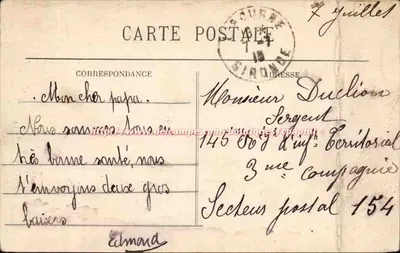 7 Juillet
CARTE POSTALE
GIRONDE
CORRESPONDANCE
ADRESSE
Mon cher papa
Nous sommes tous en
très bonne santé, nous
t'envoyons deux gros
baisers
Edmond
Monsieur Duclion
Sergent
145 d'inf. Territorial
3me Compagnie
Secteur postal 154